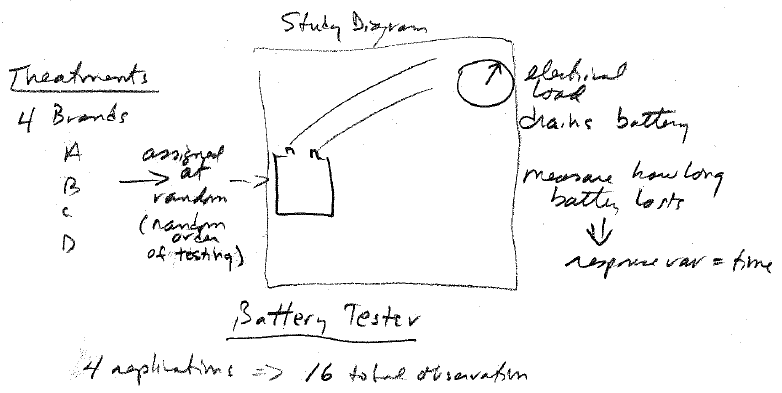 Study Diagram
Treatments
4 Brands
A
B
C
D
assigned
at
random
(random
order
of testing)
electrical
load
drains battery
measure how long
battery lasts
response var = time
Battery Tester
4 replications => 16 total observation